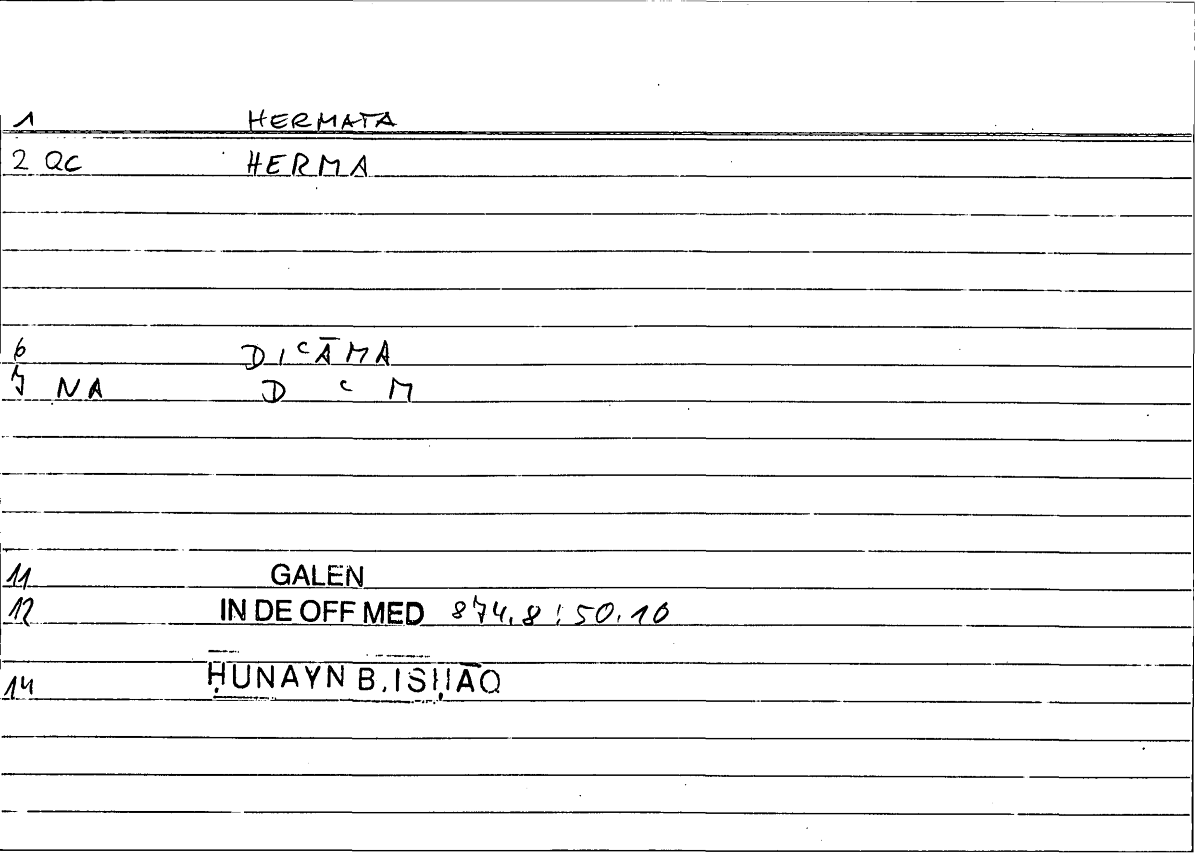 1 HERMATA
2 QC HERMA
6 DIʿĀMA
7 NA D ʿ M
11 GALEN
12 IN DE OFF MED 874.8 : 50.10
14 ḤUNAYN B. ISḤĀQ